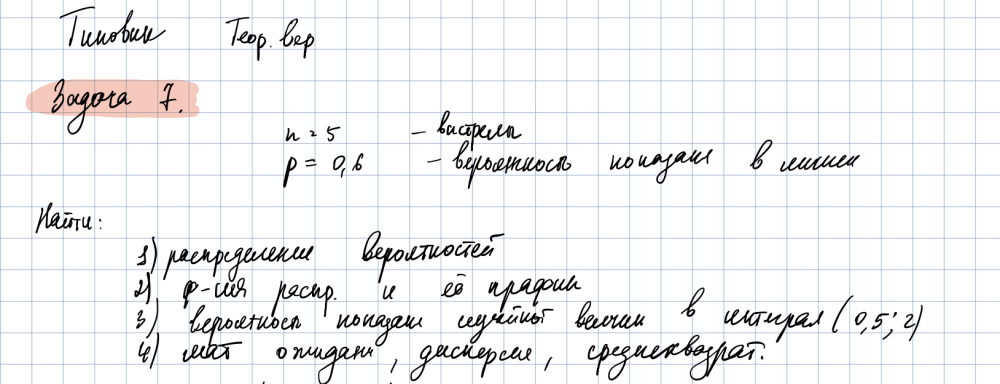 Типовик Теор. вер
Задача 7.
n = 5 – выстрелы
p = 0,6 – вероятность попадания в мишень
Найти:
1) распределение вероятностей
2) ф-ия распр. и её график
3) вероятность попадан случайной величин в интервал (0,5; 2)
4) мат ожидан, дисперсия, среднеквадрат.